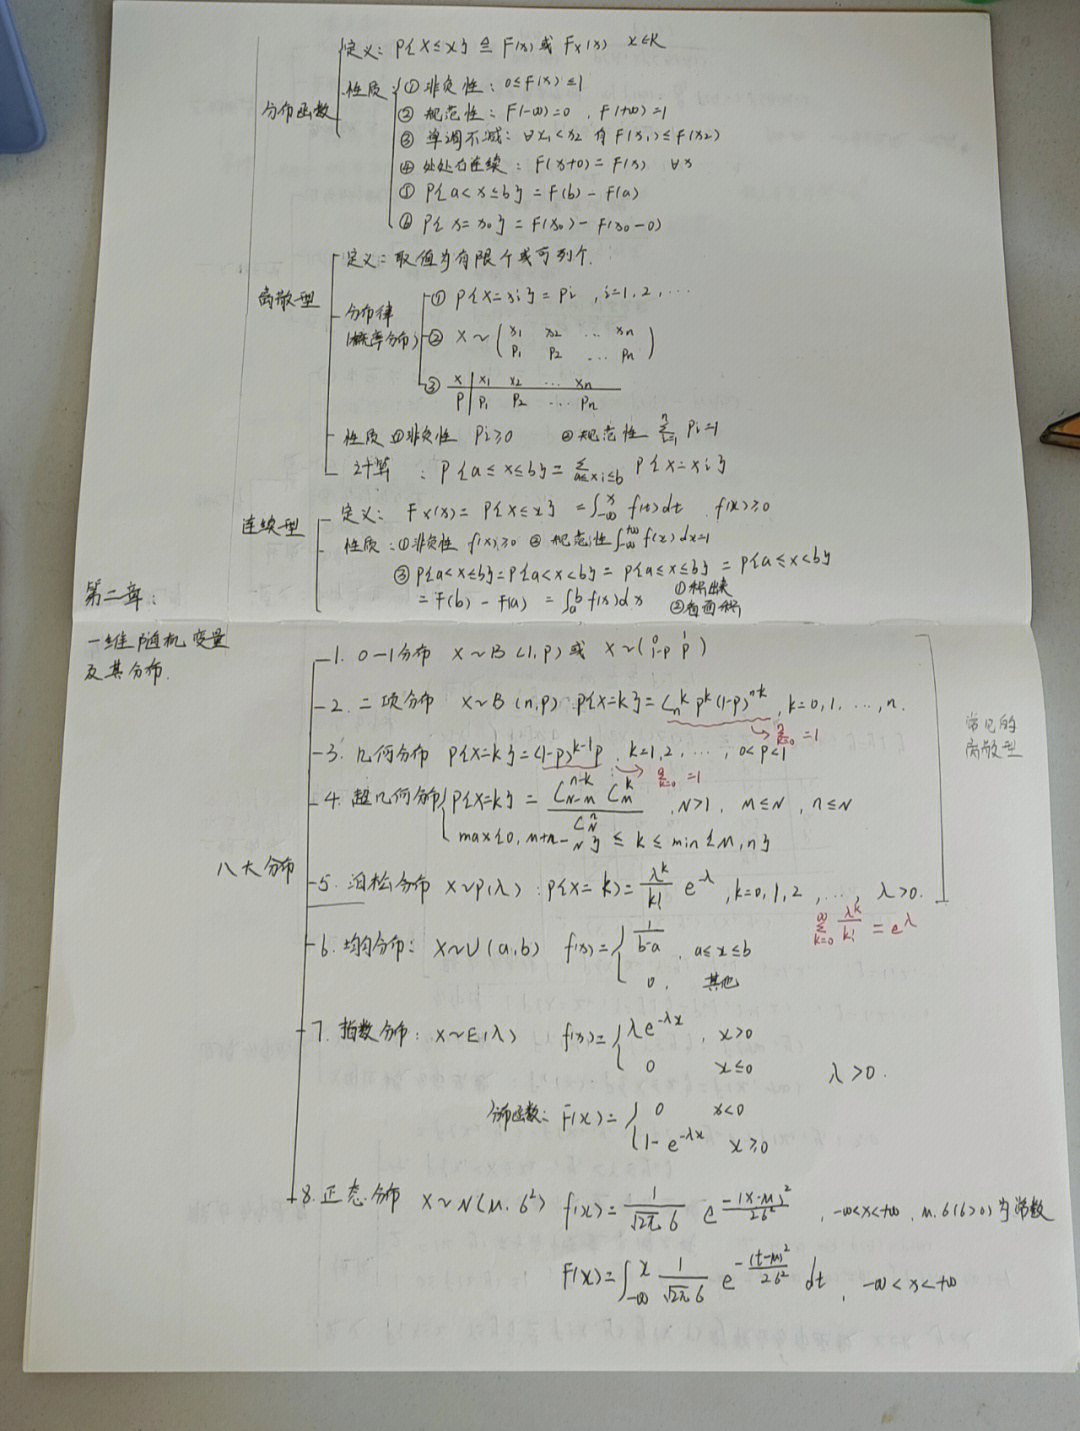 定义: P{X≤x} ≜ F(x) 或 Fx(x) x∈R
分布函数
性质 ① 非负性: 0≤F(x)≤1
② 规范性: F(-∞)=0, F(+∞)=1
③ 单调不减: ∀x₁<x₂ 有 F(x₁)≤F(x₂)
④ 处处右连续: F(x+0)=F(x) ∀x
⑤ P{a<x≤b}=F(b)-F(a)
⑥ P{x=x₀}=F(x₀)-F(x₀-0)
定义: 取值为有限个或可列个.
离散型
分布律 ① P{X=xi}=Pi, i=1,2,…
(概率分布) ② X~(x₁ x₂ … xn
P₁ P₂ … Pn)
③ X | x₁ x₂ … xn
P | P₁ P₂ … Pn
性质 ①非负性 Pi≥0 ②规范性 Σ(i=1→n) Pi=1
计算: P{a≤x≤b}=Σ(a≤xi≤b) P{X=xi}
连续型
定义: Fx(x)=P{X≤x}=∫(-∞→x) f(t)dt f(x)≥0
性质: ①非负性 f(x)≥0 ②规范性 ∫(-∞→+∞) f(x)dx=1
③ P{a<x≤b}=P{a<x<b}=P{a≤x≤b}=P{a≤x<b}
=F(b)-F(a)=∫(a→b) f(x)dx
第二章:
一维随机变量
及其分布.
八大分布
1. 0-1分布 X~B(1,p) 或 X~(0 1
1-p p)
2. 二项分布 X~B(n,p) P{X=k}=Cₙᵏ pᵏ(1-p)ⁿ⁻ᵏ, k=0,1,…,n.
常见的
离散型
3. 几何分布 P{X=k}=(1-p)ᵏ⁻¹p, k=1,2,…, 0<p<1
4. 超几何分布 P{X=k}=(C_{N-M}^{n-k} C_M^k)/(C_N^n), N>1, M≤N, n≤N
max{0,M+n-N}≤k≤min{M,n}
5. 泊松分布 X~P(λ): P{X=k}=λᵏ/k! e^{-λ}, k=0,1,2,…, λ>0.
Σ(k=0→∞) λᵏ/k! =e^λ
6. 均匀分布: X~U(a,b) f(x)={1/(b-a), a≤x≤b
0, 其他
7. 指数分布: X~E(λ) f(x)={λe^{-λx}, x>0
0 x≤0 λ>0.
分布函数: F(x)={0 x<0
1-e^{-λx} x≥0
8. 正态分布 X~N(μ,σ²) f(x)=1/(√2π σ) e^{-(x-μ)²/2σ²}, -∞<x<+∞, μ,σ(σ>0)为常数
F(x)=∫(-∞→x) 1/(√2π σ) e^{-(t-μ)²/2σ²} dt, -∞<x<+∞